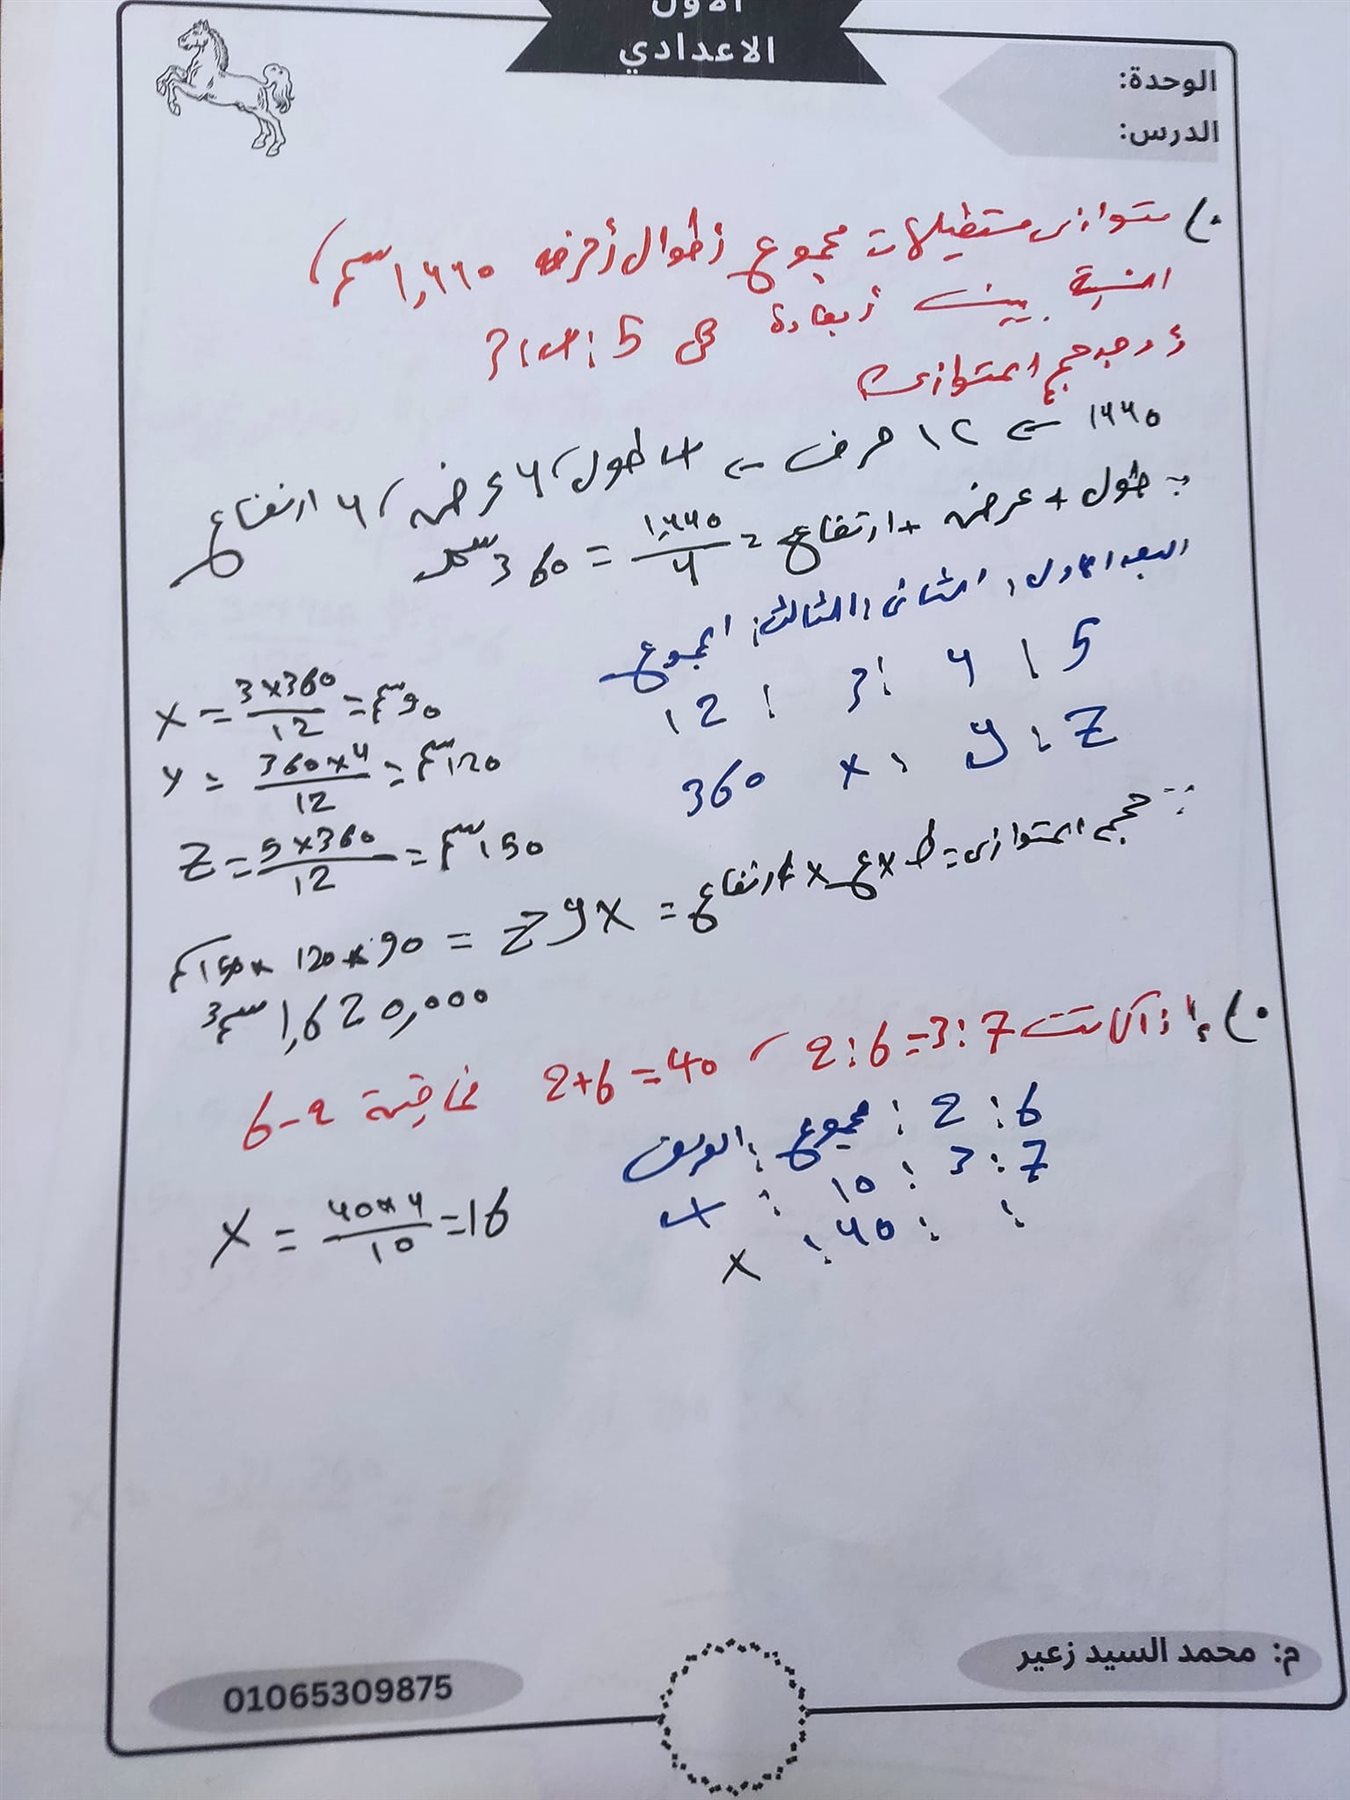 الأول
الاعدادي
الوحدة:
الدرس:
متوازى مستطيلات مجموع أطوال أحرفه 1,440 سم،
النسبة بين أبعاده هى 5:4:3
أوجد حجم المتوازى
1440 ← 12 حرف ← 4 طول، 4 عرض، 4 ارتفاع
∴ طول + عرض + ارتفاع = 1,440/4 = 360 سم
البعد الاول : الثانى : الثالث : المجموع
5 : 4 : 3 : 12
Z : y : x 360
X = 3×360/12 = 90 سم
Y = 360×4/12 = 120 سم
Z = 5×360/12 = 150 سم
∴ حجم المتوازى = ط × ع × ارتفاع = x y z = 90 × 120 × 150
1,620,000 سم3
إذا كانت 2:6=3:7 ، 2+6=40 فما قيمة 6-2
6 : 2 : مجموع : الفرق
7 : 3 : 10 : 4
: : 40 : x
X = 40×4/10 = 16
م: محمد السيد زعير
01065309875